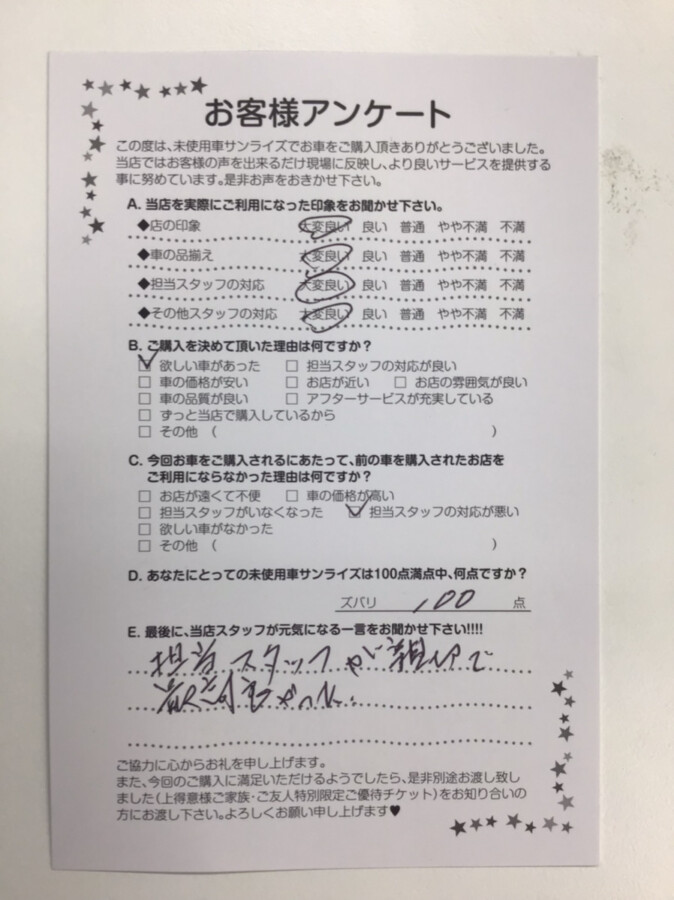 お客様アンケート
この度は、未使用車サンライズでお車をご購入頂きありがとうございました。
当店ではお客様の声を出来るだけ現場に反映し、より良いサービスを提供する
事に努めています。是非お声をおきかせ下さい。
A. 当店を実際にご利用になった印象をお聞かせ下さい。
◆店の印象 大変良い 良い 普通 やや不満 不満
◆車の品揃え 大変良い 良い 普通 やや不満 不満
◆担当スタッフの対応 大変良い 良い 普通 やや不満 不満
◆その他スタッフの対応 大変良い 良い 普通 やや不満 不満
B. ご購入を決めて頂いた理由は何ですか?
☑ 欲しい車があった □ 担当スタッフの対応が良い
□ 車の価格が安い □ お店が近い □ お店の雰囲気が良い
□ 車の品質が良い □ アフターサービスが充実している
□ ずっと当店で購入しているから
□ その他 ( )
C. 今回お車をご購入されるにあたって、前の車を購入されたお店を
ご利用にならなかった理由は何ですか?
□ お店が遠くて不便 □ 車の価格が高い
□ 担当スタッフがいなくなった ☑ 担当スタッフの対応が悪い
□ 欲しい車がなかった
□ その他 ( )
D. あなたにとっての未使用車サンライズは100点満点中、何点ですか?
ズバリ 100 点
E. 最後に、当店スタッフが元気になる一言をお聞かせ下さい!!!!
担当スタッフが親切で
ご協力に心からお礼を申し上げます。
また、今回のご購入に満足いただけるようでしたら、是非別途お渡し致し
ました(上得意様ご家族・ご友人特別限定ご優待チケット)をお知り合いの
方にお渡し下さい。よろしくお願い申し上げます♥